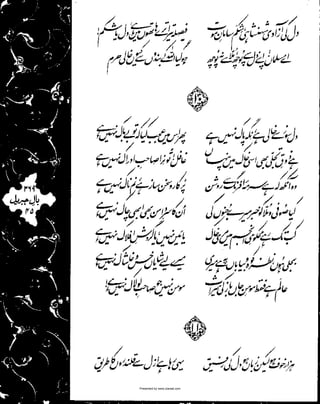 دل کی آزادی شہنشاہی، شکم سامانِ موت
فیصلہ تیرا ترے ہاتھوں میں ہے، دل یا شکم!
اے مسلماں! اپنے دل سے پوچھ، ملّا سے نہ پوچھ
ہو گیا اللہ کے بندوں سے کیوں خالی حرم
۱۰
دل سوز سے خالی ہے، نگہ پاک نہیں ہے
پھر اس میں عجب کیا کہ تو بے باک نہیں ہے
ہے ذوقِ تجلی بھی اسی خاک میں پنہاں
غافل! تو نرا صاحبِ ادراک نہیں ہے
وہ آنکھ کہ ہے سرمۂ افرنگ سے روشن
پرکار و سخن ساز ہے، نم ناک نہیں ہے
کیا صوفی و ملّا کو خبر میرے جنوں کی
ان کا سرِ دامن بھی ابھی چاک نہیں ہے
کب تک رہے محکومیِ انجم میں مری خاک
یا میں نہیں، یا گردشِ افلاک نہیں ہے
بجلی ہوں، نظر کوہ و بیاباں پہ ہے مری
میرے لیے شایاں خس و خاشاک نہیں ہے
عالم ہے فقط مومنِ جاں باز کی میراث
مومن نہیں جو صاحبِ لولاک نہیں ہے!
۱۱
ہزار خوف ہو لیکن زباں ہو دل کی رفیق
یہی رہا ہے ازل سے قلندروں کا طریق
بالِ جبریل
۳۵